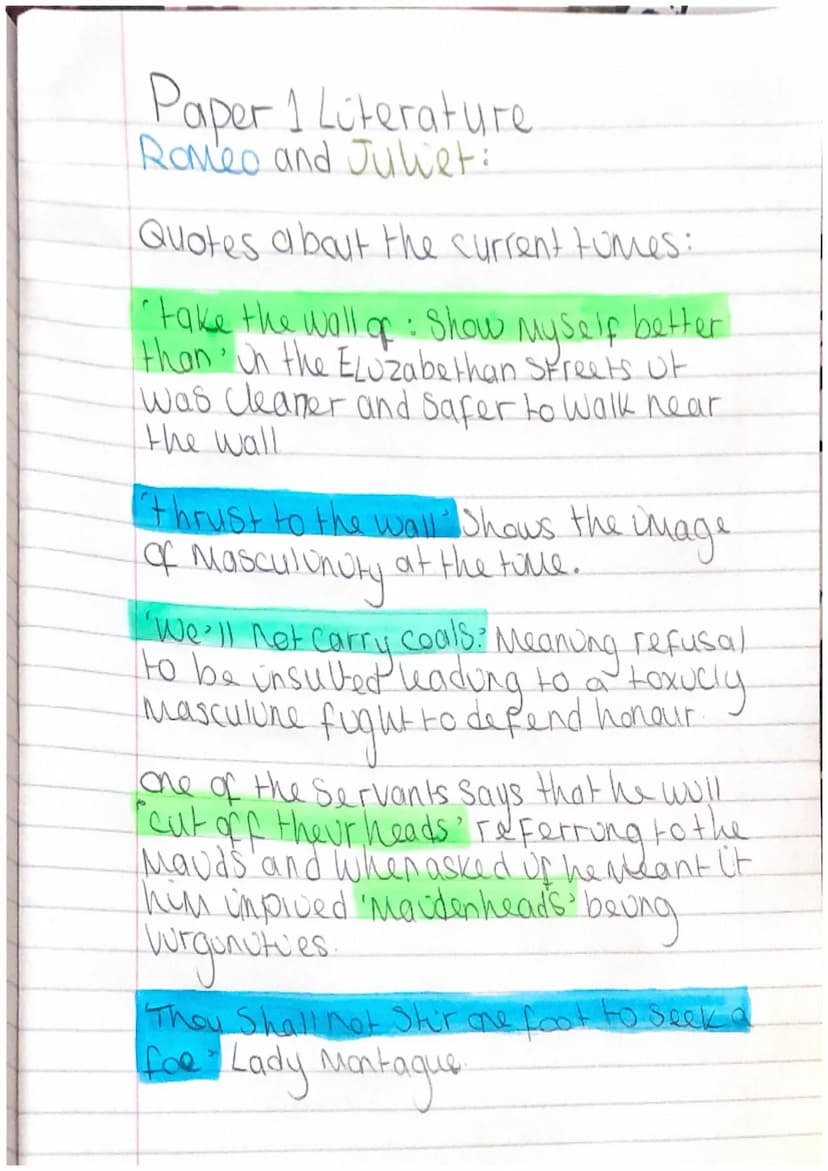 Paper 1 Literature
Romeo and Juliet:
Quotes about the current times:
'take the wall of : Show myself better
than' in the Elizabethan Streets it
was cleaner and safer to walk near
the wall
'thrust to the wall' Shows the image
of Masculinity at the time.
'We'll not carry coals.' Meaning refusal
to be insulted leading to a toxicly
Masculine fight to defend honour.
One of the servants says that he will
'cut off their heads' referring to the
Maids and when asked if he meant it
him implied 'Maidenheads' being
virginities.
'Thou Shall not Stir one foot to Seek a
foe' Lady Montague.